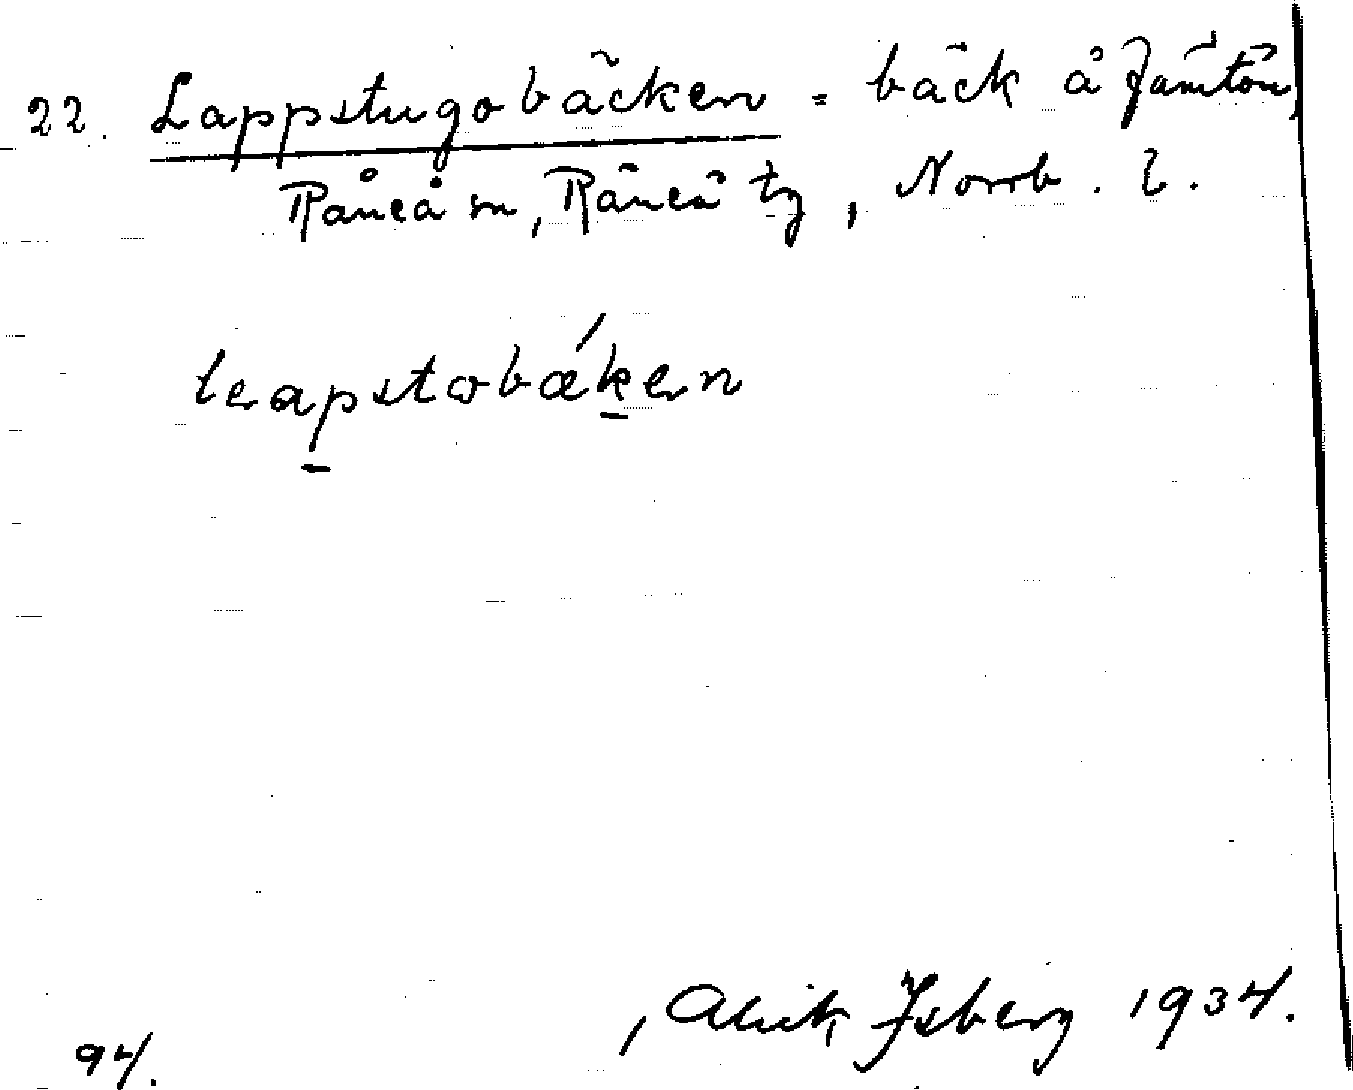 22. Lappstugobäcken = bäck å Jämtön,
Råneå sn, Råneå tg, Norrb. l.
leapstobæken
Alrik Isberg 1934.
94.